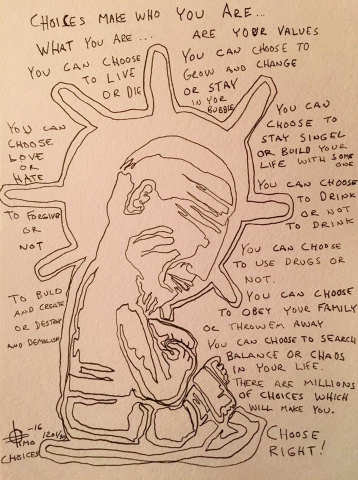 CHOISES MAKE WHO YOU ARE...
WHAT YOU ARE... ARE YOUR VALUES
YOU CAN CHOOSE
TO LIVE
OR DIE
YOU CAN CHOOSE TO
GROW AND CHANGE
OR STAY
IN YOR
BUBBLE
YOU CAN
CHOOSE TO
STAY SINGEL
OR BUILD YOUR
LIFE WITH SOME
ONE
YOU CAN
CHOOSE
LOVE
OR
HATE
YOU CAN CHOOSE
TO DRINK
OR NOT
TO DRINK
TO FORGIVE
OR
NOT
YOU CAN CHOOSE
TO USE DRUGS OR
NOT.
TO BUILD
AND CREATE
OR DESTROY
AND DEMOLISH
YOU CAN CHOOSE
TO OBEY YOUR FAMILY
OR THROW EM AWAY
YOU CAN CHOOSE TO SEARCH
BALANCE OR CHAOS
IN YOUR LIFE.
THERE ARE MILLIONS
OF CHOICES WHICH
WILL MAKE YOU.
CHOOSE
RIGHT!
-16
TIMO
CHOICES